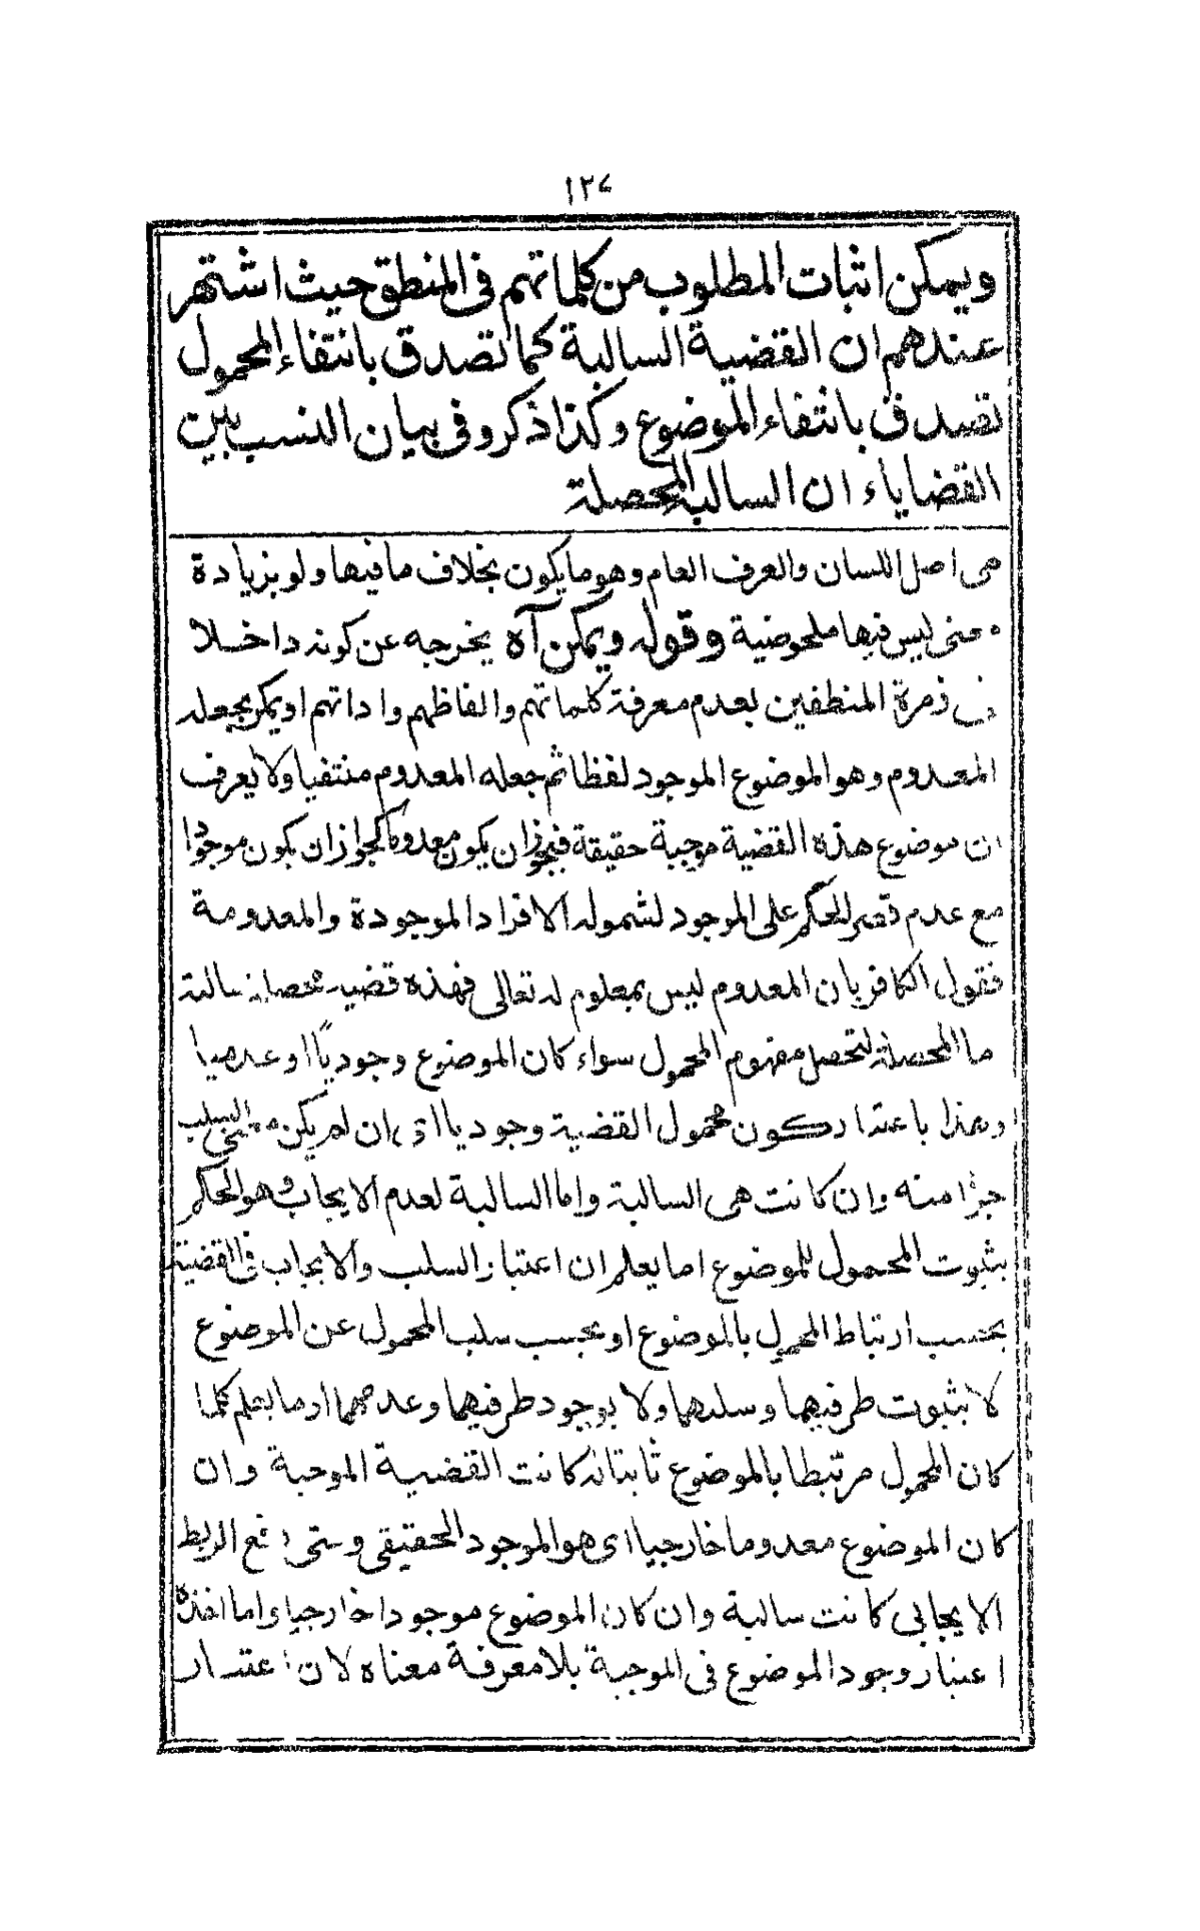 ١٢٧
ويمكن اثبات المطلوب من كلماتهم فى المنطق حيث اشتهر
عندهم ان القضية السالبة كما تصدق بانتفاء المحمول
تصدق بانتفاء الموضوع وكذا ذكرو فى بيان النسب بين
القضاياء ان السالبة المحصلة
هى اصل اللسان والعرف العام وهو ما يكون بخلاف ما فيها ولو بزيادة
معنى ليس فيها ملحوضية وقوله ويمكن آه يخرجه عن كونه داخلا
فى زمرة المنطفين بعدم معرفة كلماتهم والفاظهم واداتهم او يمكن بجعله
المعدوم وهو الموضوع الموجود لفظا ثم جعله المعدوم منتفيا ولا يعرف
ان موضوع هذه القضية موجبة حقيقة فيجوز ان يكون معدوما كجواز ان يكون موجودا
مع عدم قصر الحكم على الموجود لشموله الافراد الموجودة والمعدومة
فقول الكافر بان المعدوم ليس بمعلوم له تعالى فهذه قضيه محصلة سالبة
ما المحصلة لتحصل مفهوم المحمول سواء كان الموضوع وجوديًا او عدميا
وهذا باعتبار كون محمول القضية وجوديا اى ان لم يكن معنى السلب
جزأ منه وان كانت هى السالبة واما السالبة لعدم الايجاب وهو الحكم
بثبوت المحمول للموضوع اما يعلم ان اعتبار السلب والايجاب فى القضية
بحسب ارتباط المحمول بالموضوع او بحسب سلب المحمول عن الموضوع
لا بثبوت طرفيها وسلبهما ولا بوجود طرفيهما وعدمهما او ما يعلم كلما
كان المحمول مرتبطا بالموضوع ثابتا له كانت القضية الموجبة وان
كان الموضوع معدوما خارجيا اى هو الموجود الحقيقى ومتى رفع الربط
الايجابى كانت سالبة وان كان الموضوع موجودا خارجياء اما اخذه
اعتبار وجود الموضوع فى الموجبة بلا معرفة معناه لان اعتبار